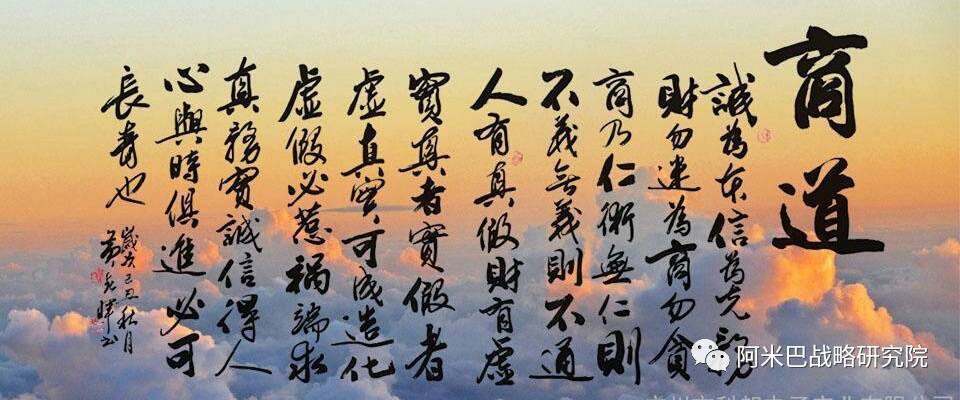 商道
誠為本信為先
財勿迷為商勿貪
商乃仁術無仁則
不義无義則不通
人有真假財有虛
實真者實假者
虛真實可成造化
虛假必惹禍端求
真務實誠信得人
心與時俱進必可
長壽也
歲次己丑秋月
阿米巴战略研究院